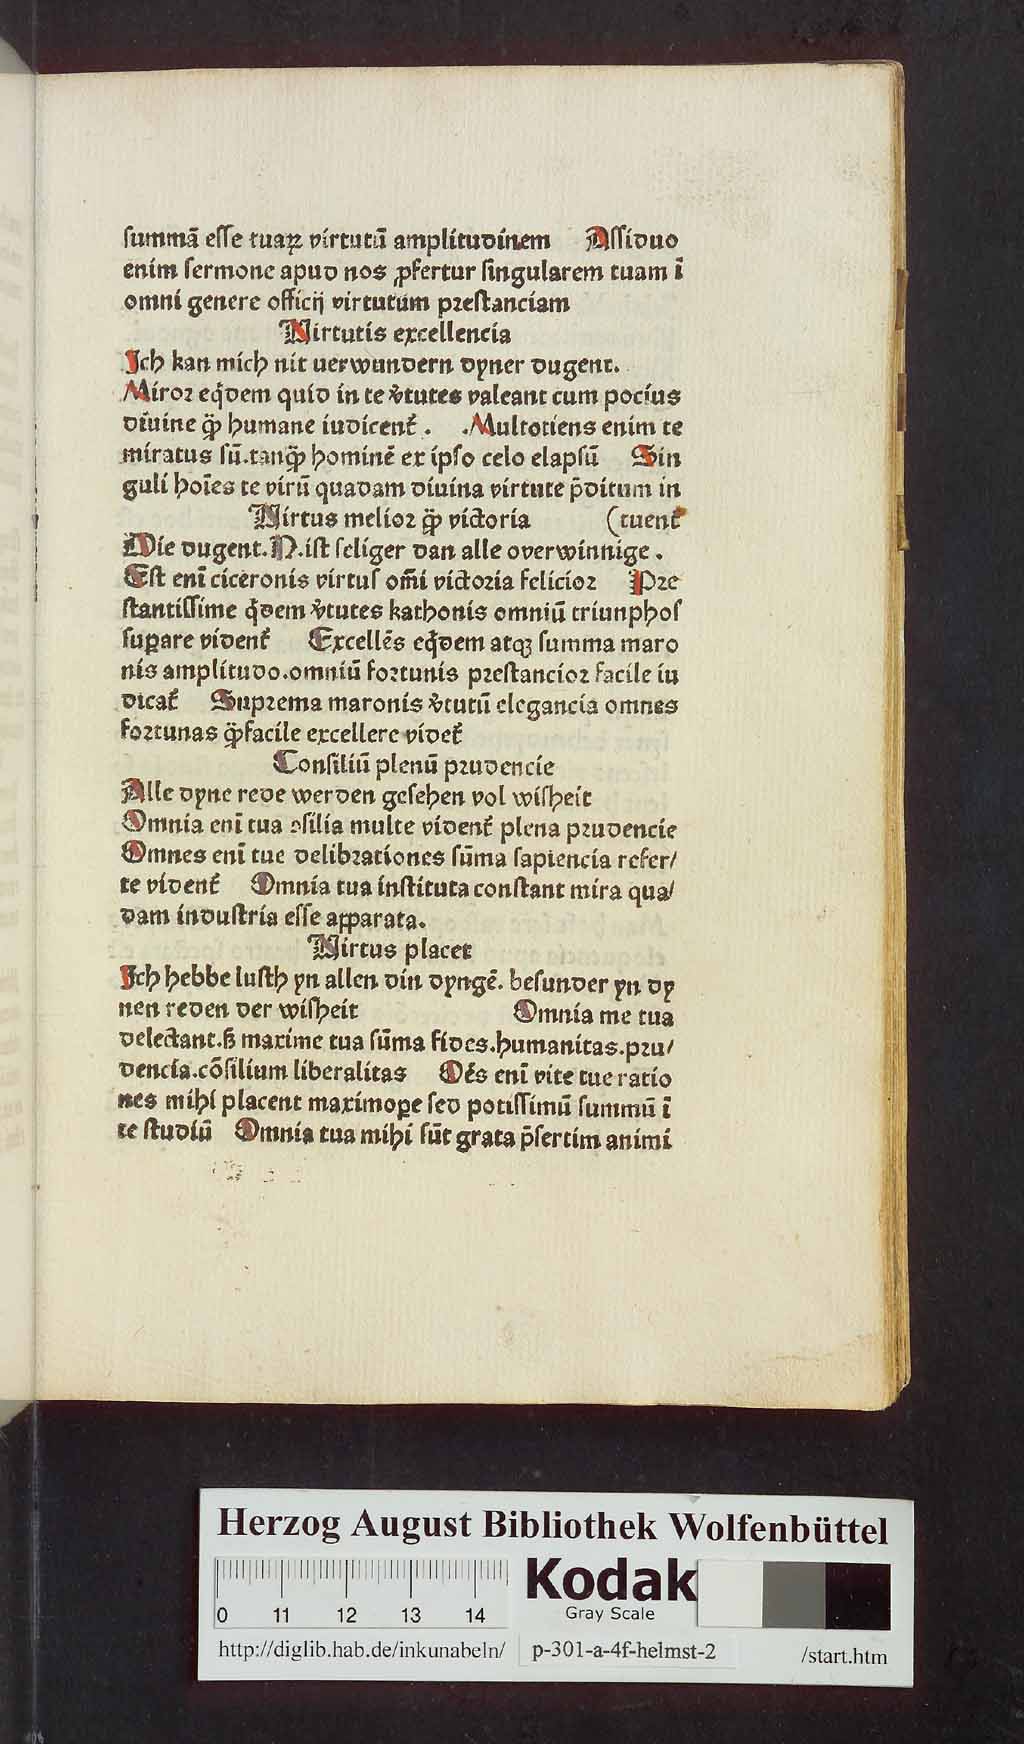 summā esse tuaꝝ virtutū amplitudinem Assiduo
enim sermone apud nos ꝓfertur singularem tuam ī
omni genere officij virtutum prestanciam
Virtutis excellencia
Ich kan mich nit uerwundern dyner dugent.
Miror eq̇dem quid in te v̇tutes valeant cum pocius
diuine q̄ꝫ humane iudicent᷑ . .Multotiens enim te
miratus sū.tanq̄ꝫ hominē ex ipso celo elapsū Sin
guli hoīes te virū quadam diuina virtute p̄ditum in
Virtus melior q̄ꝫ victoria (tuent᷑
Die dugent.N.ist seliger dan alle overwinnige .
Est enī ciceronis virtus om̄i victoria felicior Pre
stantissime q̇dem v̇tutes kathonis omniū triunphos
suꝑare vident᷑ Excellēs eq̇dem atqꝫ summa maro
nis amplitudo.omniū fortunis prestancior facile iu
dicat᷑ Suprema maronis v̇tutū elegancia omnes
fortunas q̄ꝫfacile excellere videt᷑
Consiliū plenū prudencie
Alle dyne rede werden gesehen vol wisheit
Omnia enī tua ꝯsilia multe vident᷑ plena prudencie
Omnes enī tue delibrationes sūma sapiencia refer/
te vident᷑ Omnia tua instituta constant mira qua/
dam industria esse aꝑparata.
Virtus placet
Ich hebbe lusth yn allen din dyngē. besunder yn dy
nen reden der wisheit Omnia me tua
delectant.ß maxime tua sūma fides.humanitas.pru/
dencia.cōsilium liberalitas Oēs enī vite tue ratio
nes mihi placent maximoꝑe sed potissimū summū ī
te studiū Omnia tua mihi sūt grata p̄sertim animi
Herzog August Bibliothek Wolfenbüttel
0 11 12 13 14
Kodak
Gray Scale
http://diglib.hab.de/inkunabeln/ p-301-a-4f-helmst-2 /start.htm